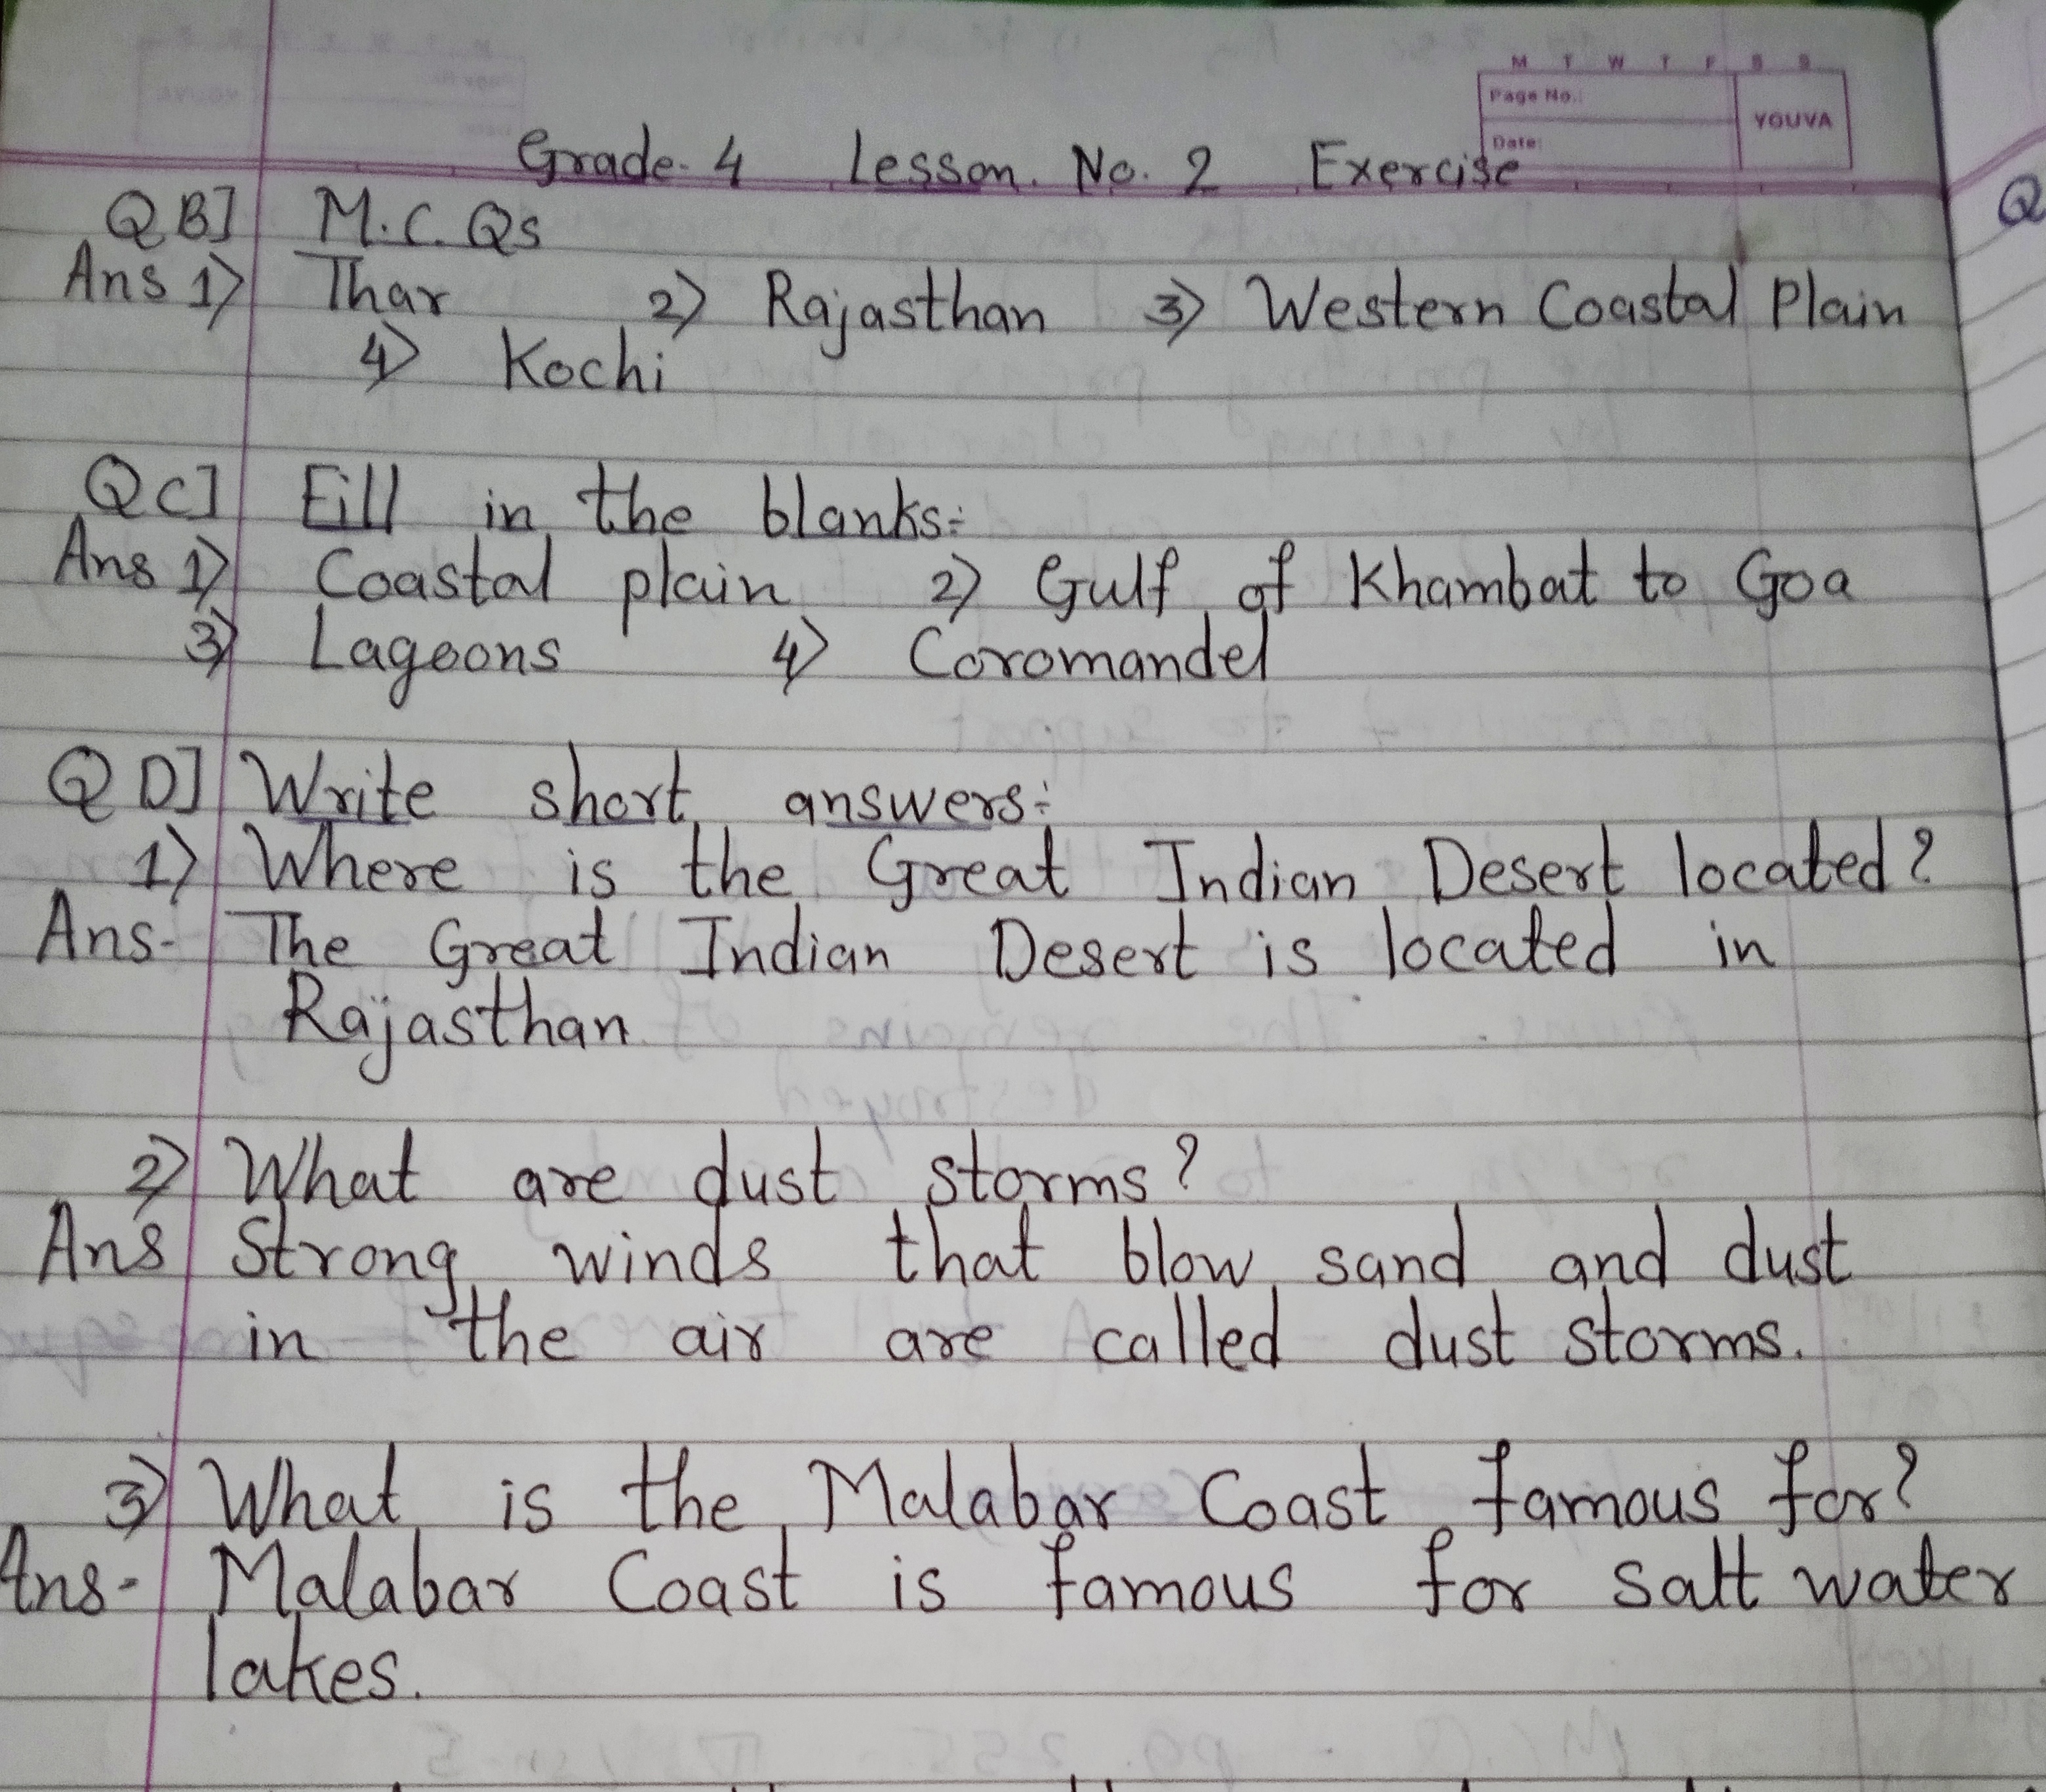 M T W T F S S
Page No.:
YOUVA
Date:
Grade-4 Lesson. No. 2 Exercise
Q B] M.C.Qs
Ans 1) Thar 2) Rajasthan 3) Western Coastal Plain
4) Kochi
Q C] Fill in the blanks:-
Ans 1) Coastal plain 2) Gulf of Khambat to Goa
3) Lagoons 4) Coromandel
Q D] Write short answers:-
1) Where is the Great Indian Desert located?
Ans- The Great Indian Desert is located in
Rajasthan
2) What are dust storms?
Ans Strong winds that blow sand and dust
in the air are called dust storms.
3) What is the Malabar Coast famous for?
Ans- Malabar Coast is famous for salt water
lakes.
Q